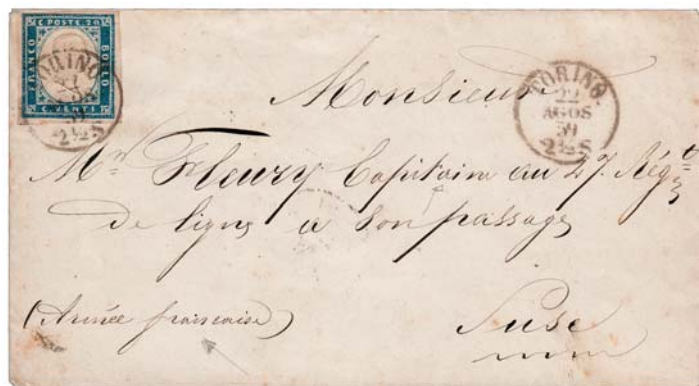 C. POSTE 20
FRANCO
BOLLO
C. VENTI
TORINO
22
AGOS
59
2½S
Monsieur
Mr Fleury Capitaine au 27. Régt
de ligne a son passage
(Armée francaise)
Suse